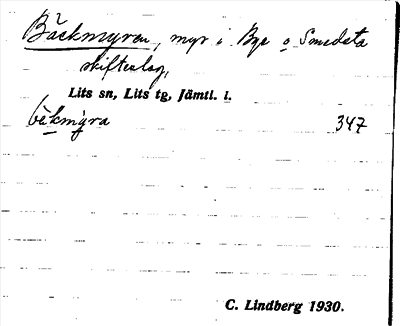 Bäckmyren, myr i Bye o Smedsta
skifteslag,
Lits sn, Lits tg, Jämtl. i.
bèkmýra 347
C. Lindberg 1930.